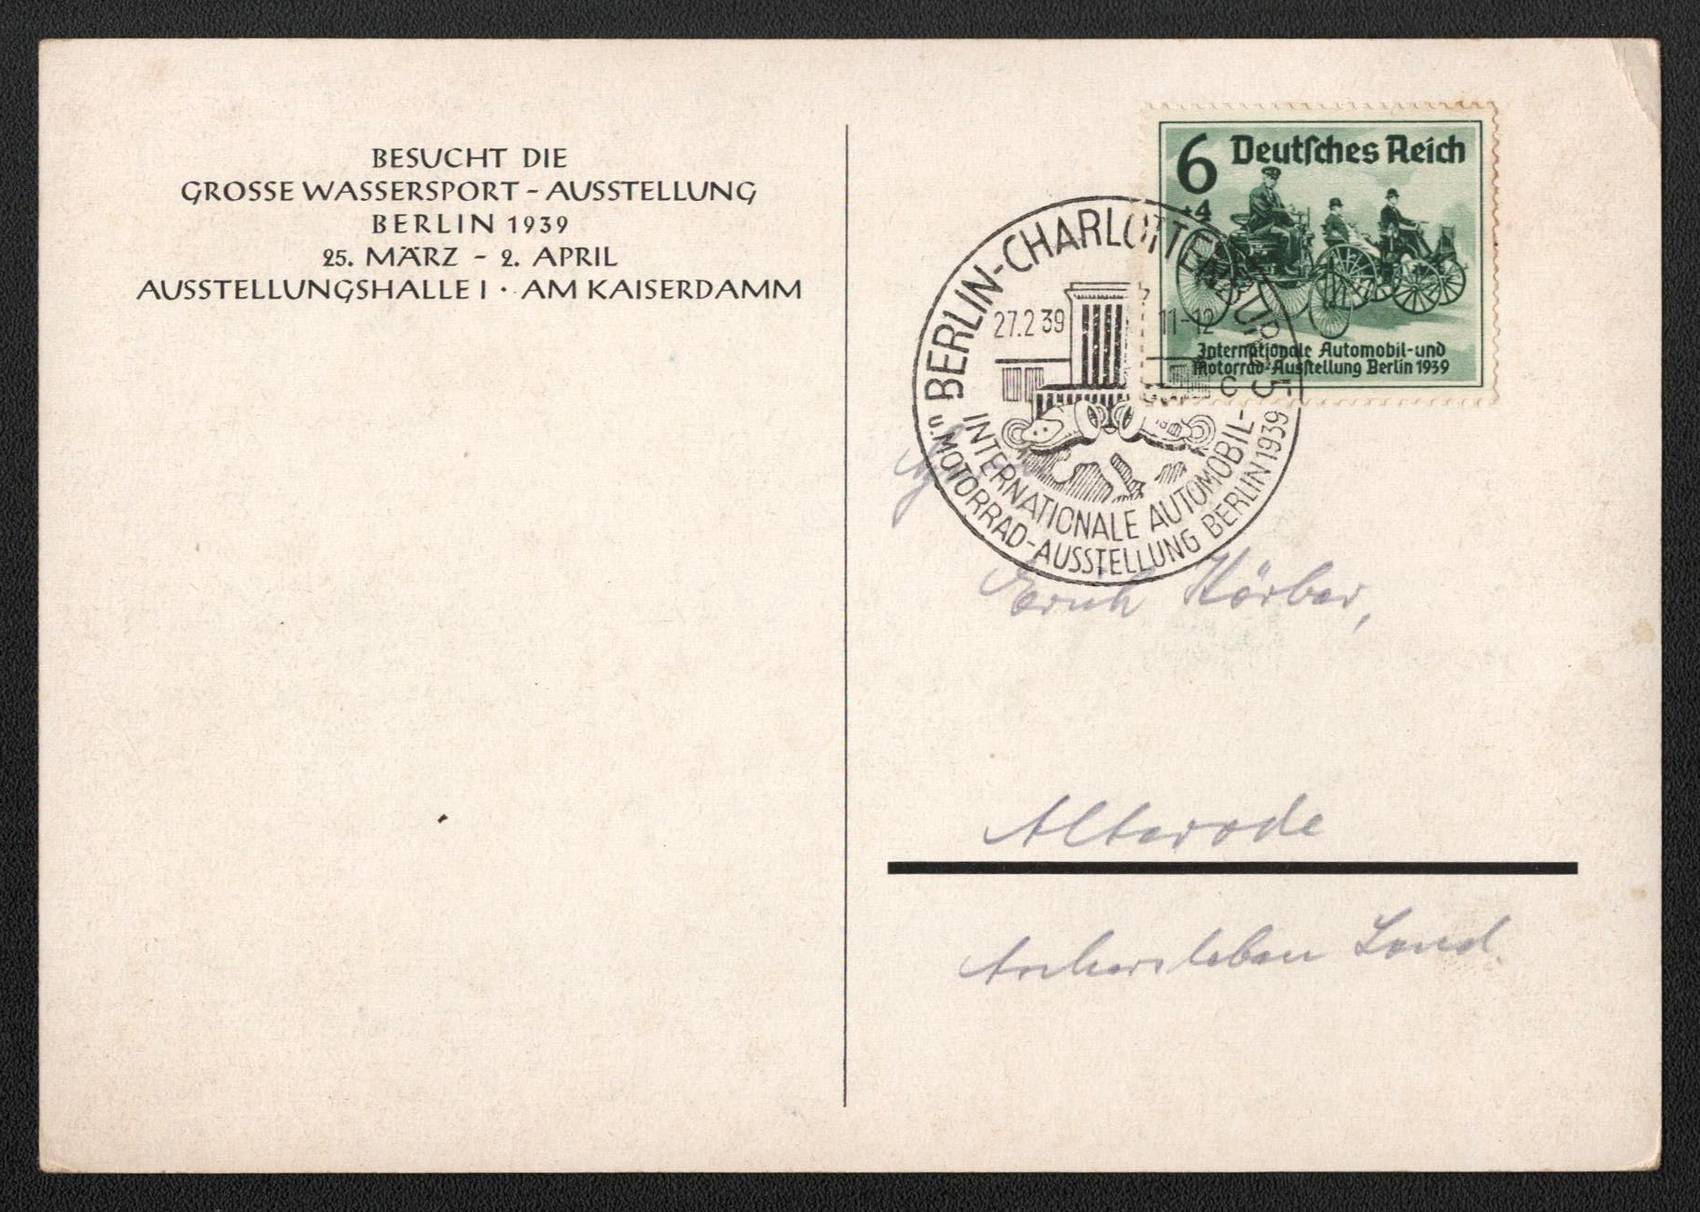 BESUCHT DIE
GROSSE WASSERSPORT - AUSSTELLUNG
BERLIN 1939
25. MÄRZ - 2. APRIL
AUSSTELLUNGSHALLE I · AM KAISERDAMM
6 Deutsches Reich
+4
Internationale Automobil-und
Motorrad-Ausstellung Berlin 1939
BERLIN-CHARLOTTENBURG 5
27.2 39 11-12
c
INTERNATIONALE AUTOMOBIL-
u. MOTORRAD-AUSSTELLUNG BERLIN 1939
Erich Körber,
Alterode
Aschersleben Land